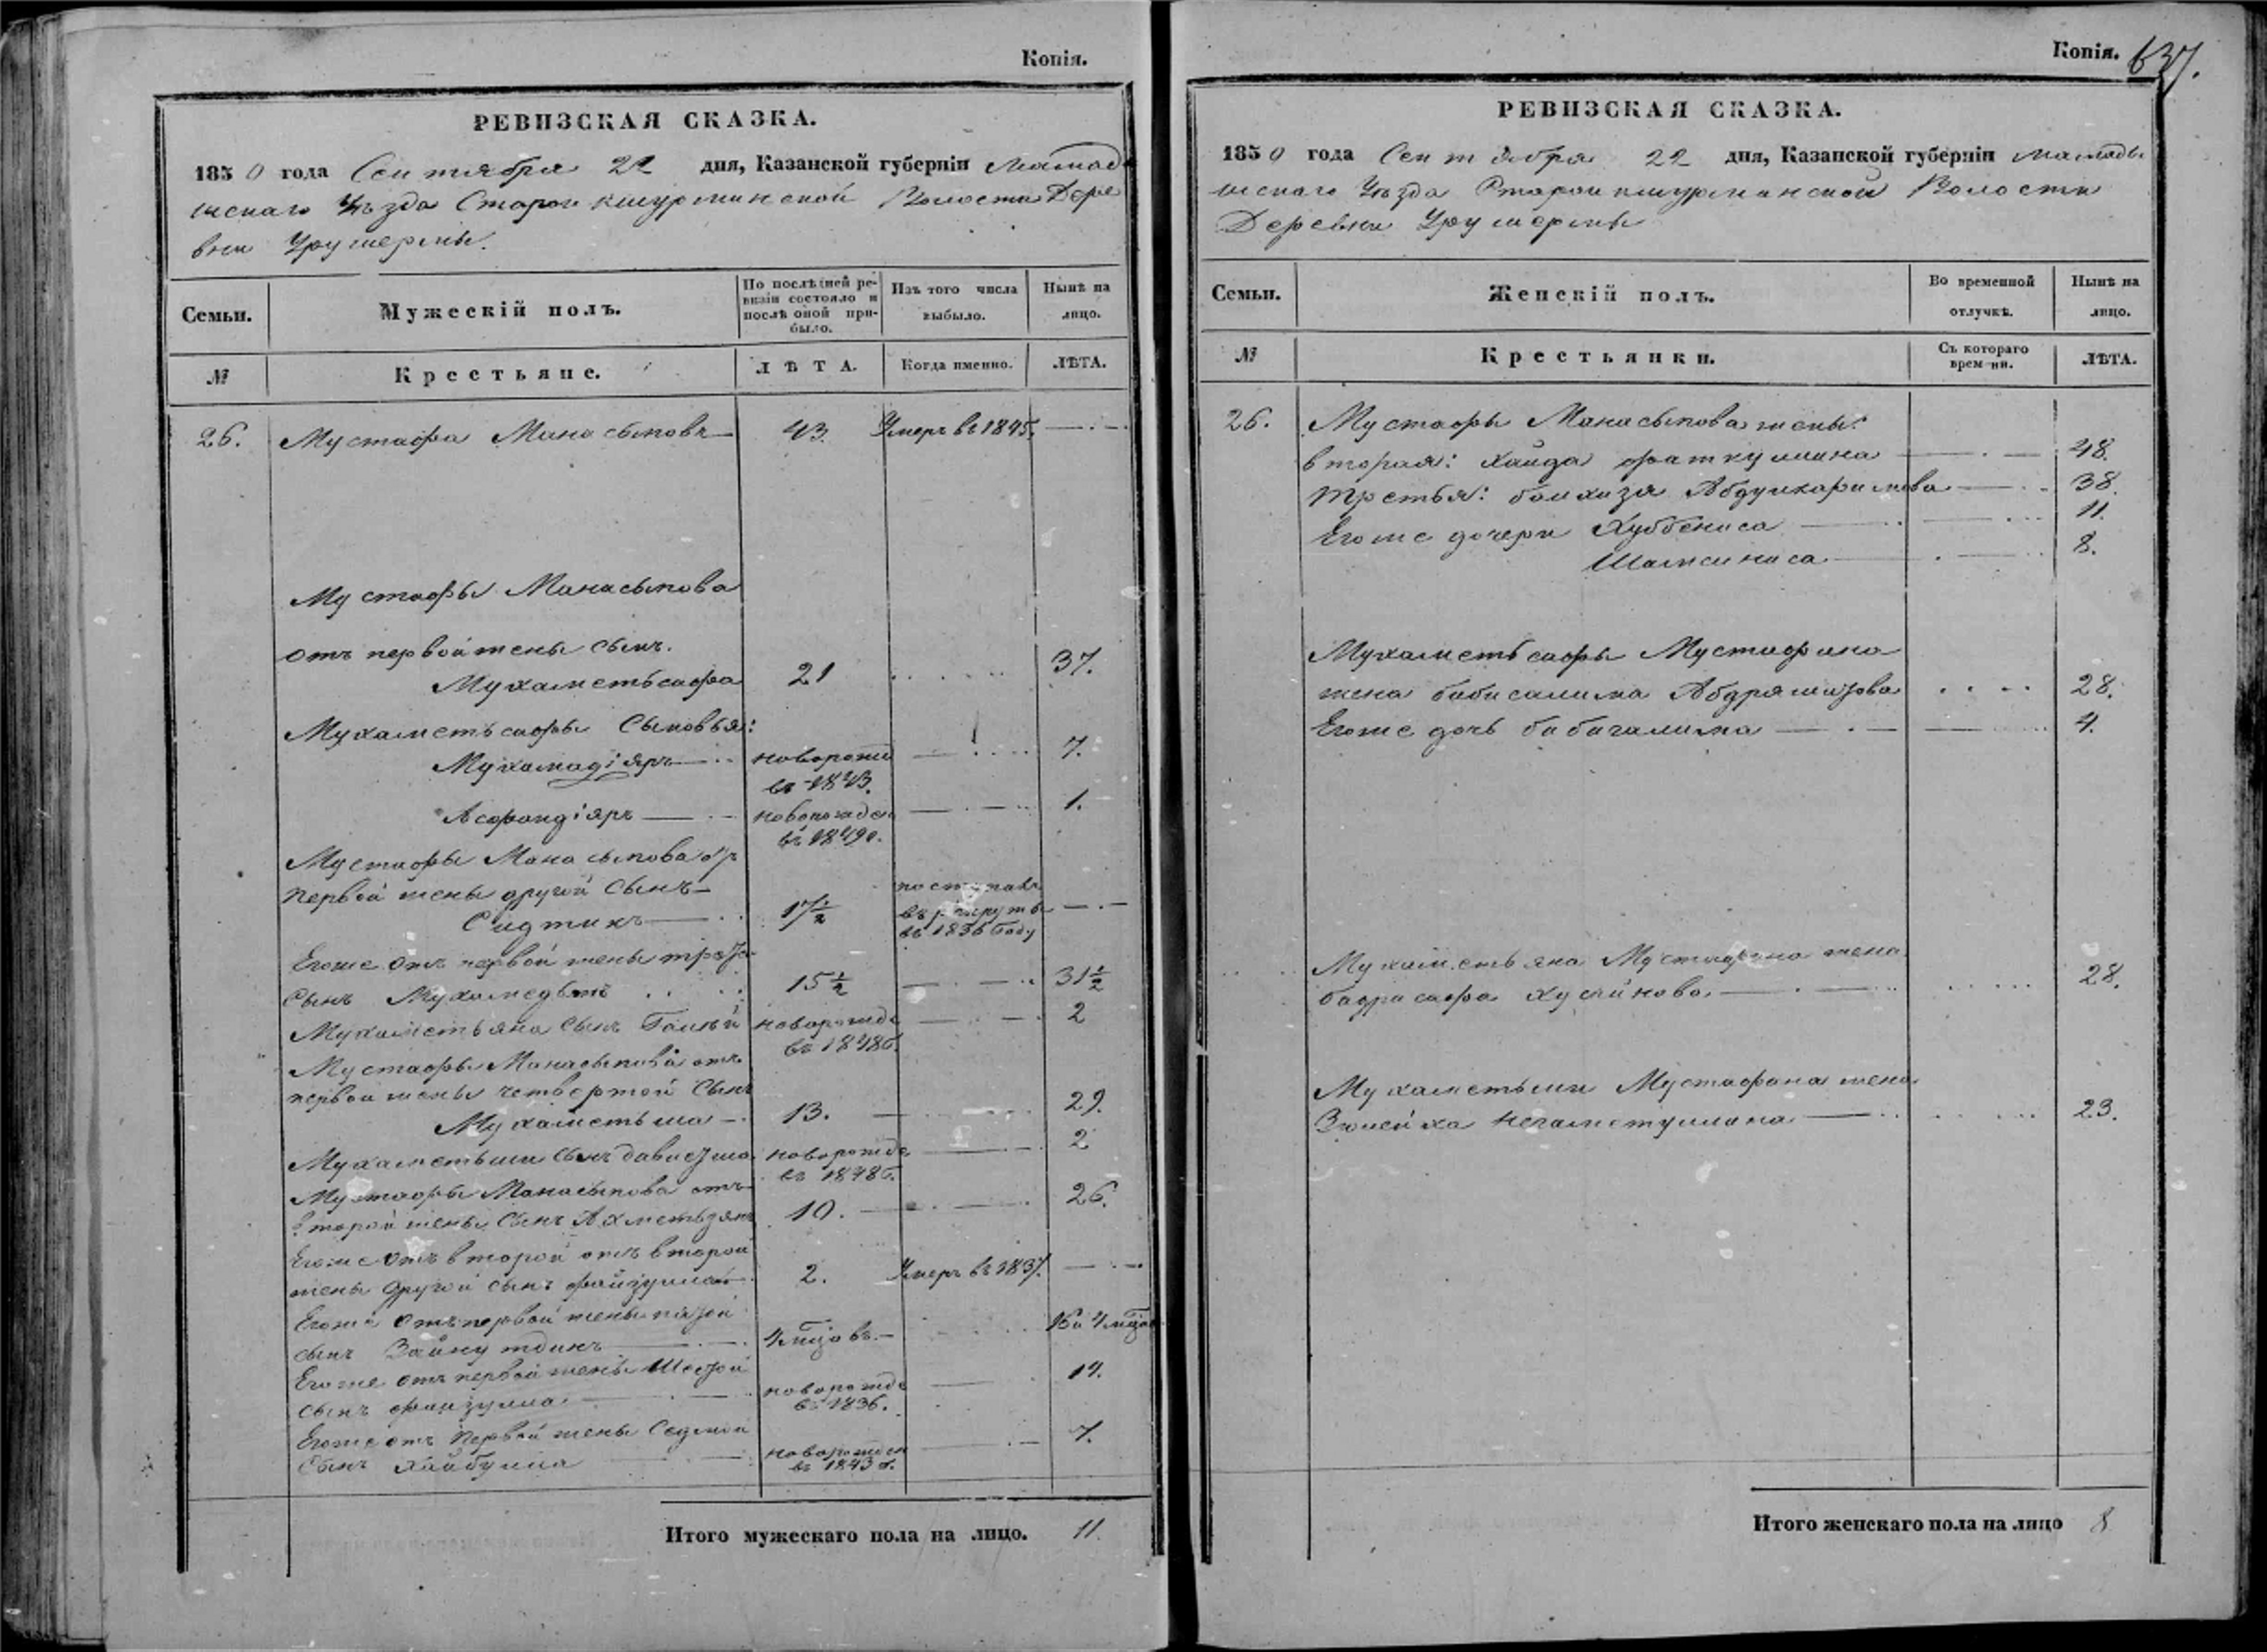 Копія.
РЕВИЗСКАЯ СКАЗКА.
1850 года Сентября 22 дня, Казанской губерніи Мамад
шскаго Уѣзда Старои кшурминской Волости Дере
вни Урушермы.
Семьи. Мужескій полъ. По послѣдней ревизіи состояло и послѣ оной прибыло. Изъ того числа выбыло. Нынѣ на лицо.
№ Крестьяне. ЛѢТА. Когда именно. ЛѢТА.
26. Мустафа Манасыповъ 43. Умеръ въ 1845.
Мустафы Манасыпова
отъ первой жены сынъ.
Мухаметьсафа 21 37.
Мухаметьсафы Сыновья:
Мухамадіяръ новорожд 7.
въ 1843.
Асфандіяръ новорожден 1.
въ 1849
Мустафы Манасыпова от
первой жены другой Сынъ
Сидтикъ 17 1/2 поступилъ
въ рекруты
въ 1836 году
Егоже отъ первой жены трет
сынъ 15 1/2 31 1/2
Мухаметьяна сынъ новорожде 2
въ 1848
Мустафы Манасыпова отъ
первой жены четвертой Сынъ
Мухаметьша 13. 29.
Мухаметьши сынъ новорожде 2
въ 1848
Мустафы Манасыпова отъ
второй жены Сынъ Ахметьзянъ 10. 26.
Егоже отъ второй отъ второй
жены другой сынъ файзулла 2. Умеръ въ 1837.
Егоже отъ первой жены пятой
сынъ Зайнутдинъ 4 мцовъ 16 и 4 мцов
Егоже отъ первой жены Шестой
сынъ файзулла новорожде 14.
въ 1836.
Егоже отъ Первой жены Седмой
Сынъ Хайбулла новорожден 7.
въ 1843
Итого мужескаго пола на лицо. 11.
Копія. 637.
РЕВИЗСКАЯ СКАЗКА.
1850 года Сентября 22 дня, Казанской губерніи Мамады
шскаго Уѣзда Старои кшурминской Волости
Деревни Урушермы
Семьи. Женскій полъ. Во временной отлучкѣ. Нынѣ на лицо.
№ Крестьянки. Съ котораго времени. ЛѢТА.
26. Мустафы Манасыпова жены:
вторая: Хаида фаткуллина 48.
третья: Абдулкаримова 38.
Егоже дочери Хуббениса 11.
Шамсиниса 8.
Мухаметьсафы Мустафина
жена бибисалима Абдряшитова 28.
Егоже дочь бибигалима 4.
Мухаметьяна Мустафина жена
бадрисафа Хусяинова 28.
Мухаметьши Мустафина жена
Зюлейха Негаметуллина 23.
Итого женскаго пола на лицо 8